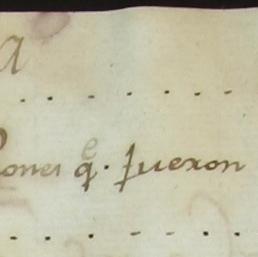 a
ones q. fueron